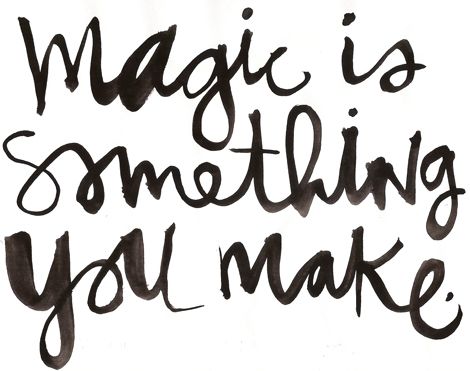 Magic is
something
you make.